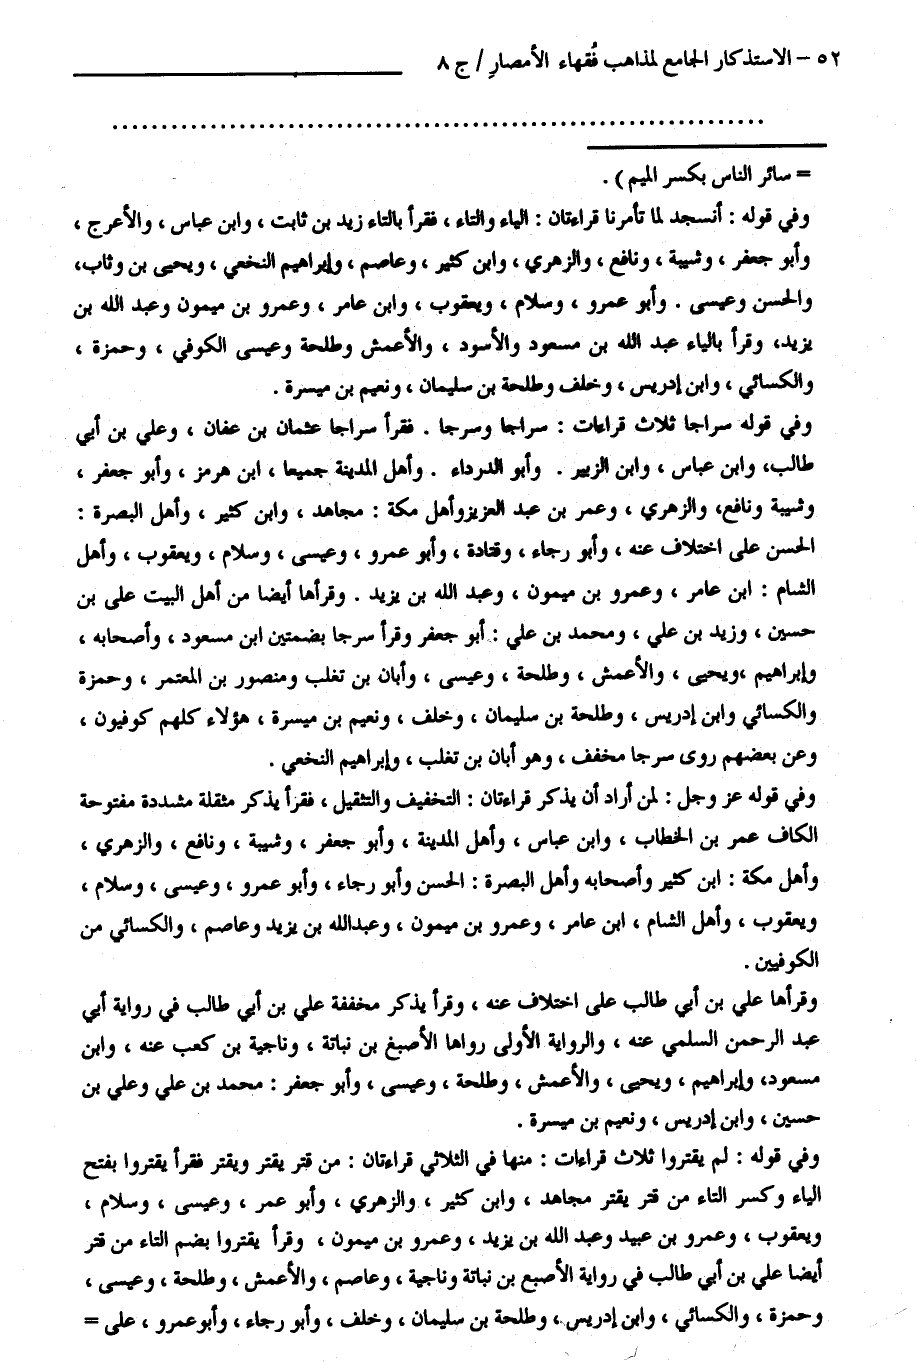 ٥٢ – الاستذكار الجامع لمذاهب فُقهاء الأمصار / ج ٨
= سائر الناس بكسر الميم ) .
وفي قوله : أنسجد لما تأمرنا قراءتان : الياء والتاء ، فقرأ بالتاء زيد بن ثابت ، وابن عباس ، والأعرج ،
وأبو جعفر ، وشيبة ، ونافع ، والزهري ، وابن كثير ، وعاصم ، وإبراهيم النخعي ، ويحيى بن وثاب،
والحسن وعيسى . وأبو عمرو ، وسلام ، ويعقوب ، وابن عامر ، وعمرو بن ميمون وعبد الله بن
يزيد، وقرأ بالياء عبد الله بن مسعود والأسود ، والأعمش وطلحة وعيسى الكوفي ، وحمزة ،
والكسائي ، وابن إدريس ، وخلف وطلحة بن سليمان ، ونعيم بن ميسرة .
وفي قوله سراجا ثلاث قراءات : سراجا وسرجا . فقرأ سراجا عثمان بن عفان ، وعلي بن أبي
طالب، وابن عباس ، وابن الزبير . وأبو الدرداء . وأهل المدينة جميعا ، ابن هرمز ، وأبو جعفر ،
وشيبة ونافع، والزهري ، وعمر بن عبد العزيزوأهل مكة : مجاهد ، وابن كثير ، وأهل البصرة :
الحسن على اختلاف عنه ، وأبو رجاء ، وقتادة ، وأبو عمرو ، وعيسى ، وسلام ، ويعقوب ، وأهل
الشام : ابن عامر ، وعمرو بن ميمون ، وعبد الله بن يزيد . وقرأها أيضا من أهل البيت على بن
حسين ، وزيد بن علي ، ومحمد بن علي : أبو جعفر وقرأ سرجا بضمتين ابن مسعود ، وأصحابه ،
وإبراهيم ،ويحيى ، والأعمش ، وطلحة ، وعيسى ، وأبان بن تغلب ومنصور بن المعتمر ، وحمزة
والكسائي وابن إدريس ، وطلحة بن سليمان ، وخلف ، ونعيم بن ميسرة ، هؤلاء كلهم كوفيون ،
وعن بعضهم روى سرجا مخفف ، وهو أبان بن تغلب ، وإبراهيم النخعي .
وفي قوله عز وجل : لمن أراد أن يذكر قراءتان : التخفيف والتثقيل ، فقرأ يذكر مثقلة مشددة مفتوحة
الكاف عمر بن الخطاب ، وابن عباس ، وأهل المدينة ، وأبو جعفر ، وشيبة ، ونافع ، والزهري ،
وأهل مكة : ابن كثير وأصحابه وأهل البصرة : الحسن وأبو رجاء ، وأبو عمرو ، وعيسى ، وسلام ،
ويعقوب ، وأهل الشام ، ابن عامر ، وعمرو بن ميمون ، وعبدالله بن يزيد وعاصم ، والكسائي من
الكوفيين .
وقرأها علي بن أبي طالب على اختلاف عنه ، وقرأ يذكر مخففة علي بن أبي طالب في رواية أبي
عبد الرحمن السلمي عنه ، والرواية الأولى رواها الأصبغ بن نباتة ، وناجية بن كعب عنه ، وابن
مسعود، وإبراهيم ، ويحيى ، والأعمش ، وطلحة ، وعيسى ، وأبو جعفر : محمد بن علي وعلي بن
حسين ، وابن إدريس ، ونعيم بن ميسرة .
وفي قوله : لم يقتروا ثلاث قراءات : منها في الثلاثي قراءتان : من قتر يقتر ويقتر فقرأ يقتروا بفتح
الياء وكسر التاء من قتر يقتر مجاهد ، وابن كثير ، والزهري ، وأبو عمر ، وعيسى ، وسلام ،
ويعقوب ، وعمرو بن عبيد وعبد الله بن يزيد ، وعمرو بن ميمون ، وقرأ يقتروا بضم التاء من قتر
أيضا علي بن أبي طالب في رواية الأصبع بن نباتة وناجية ، وعاصم ، والأعمش ، وطلحة ، وعيسى ،
وحمزة ، والكسائي ، وابن إدريس ، وطلحة بن سليمان ، وخلف ، وأبو رجاء ، وأبوعمرو ، على =